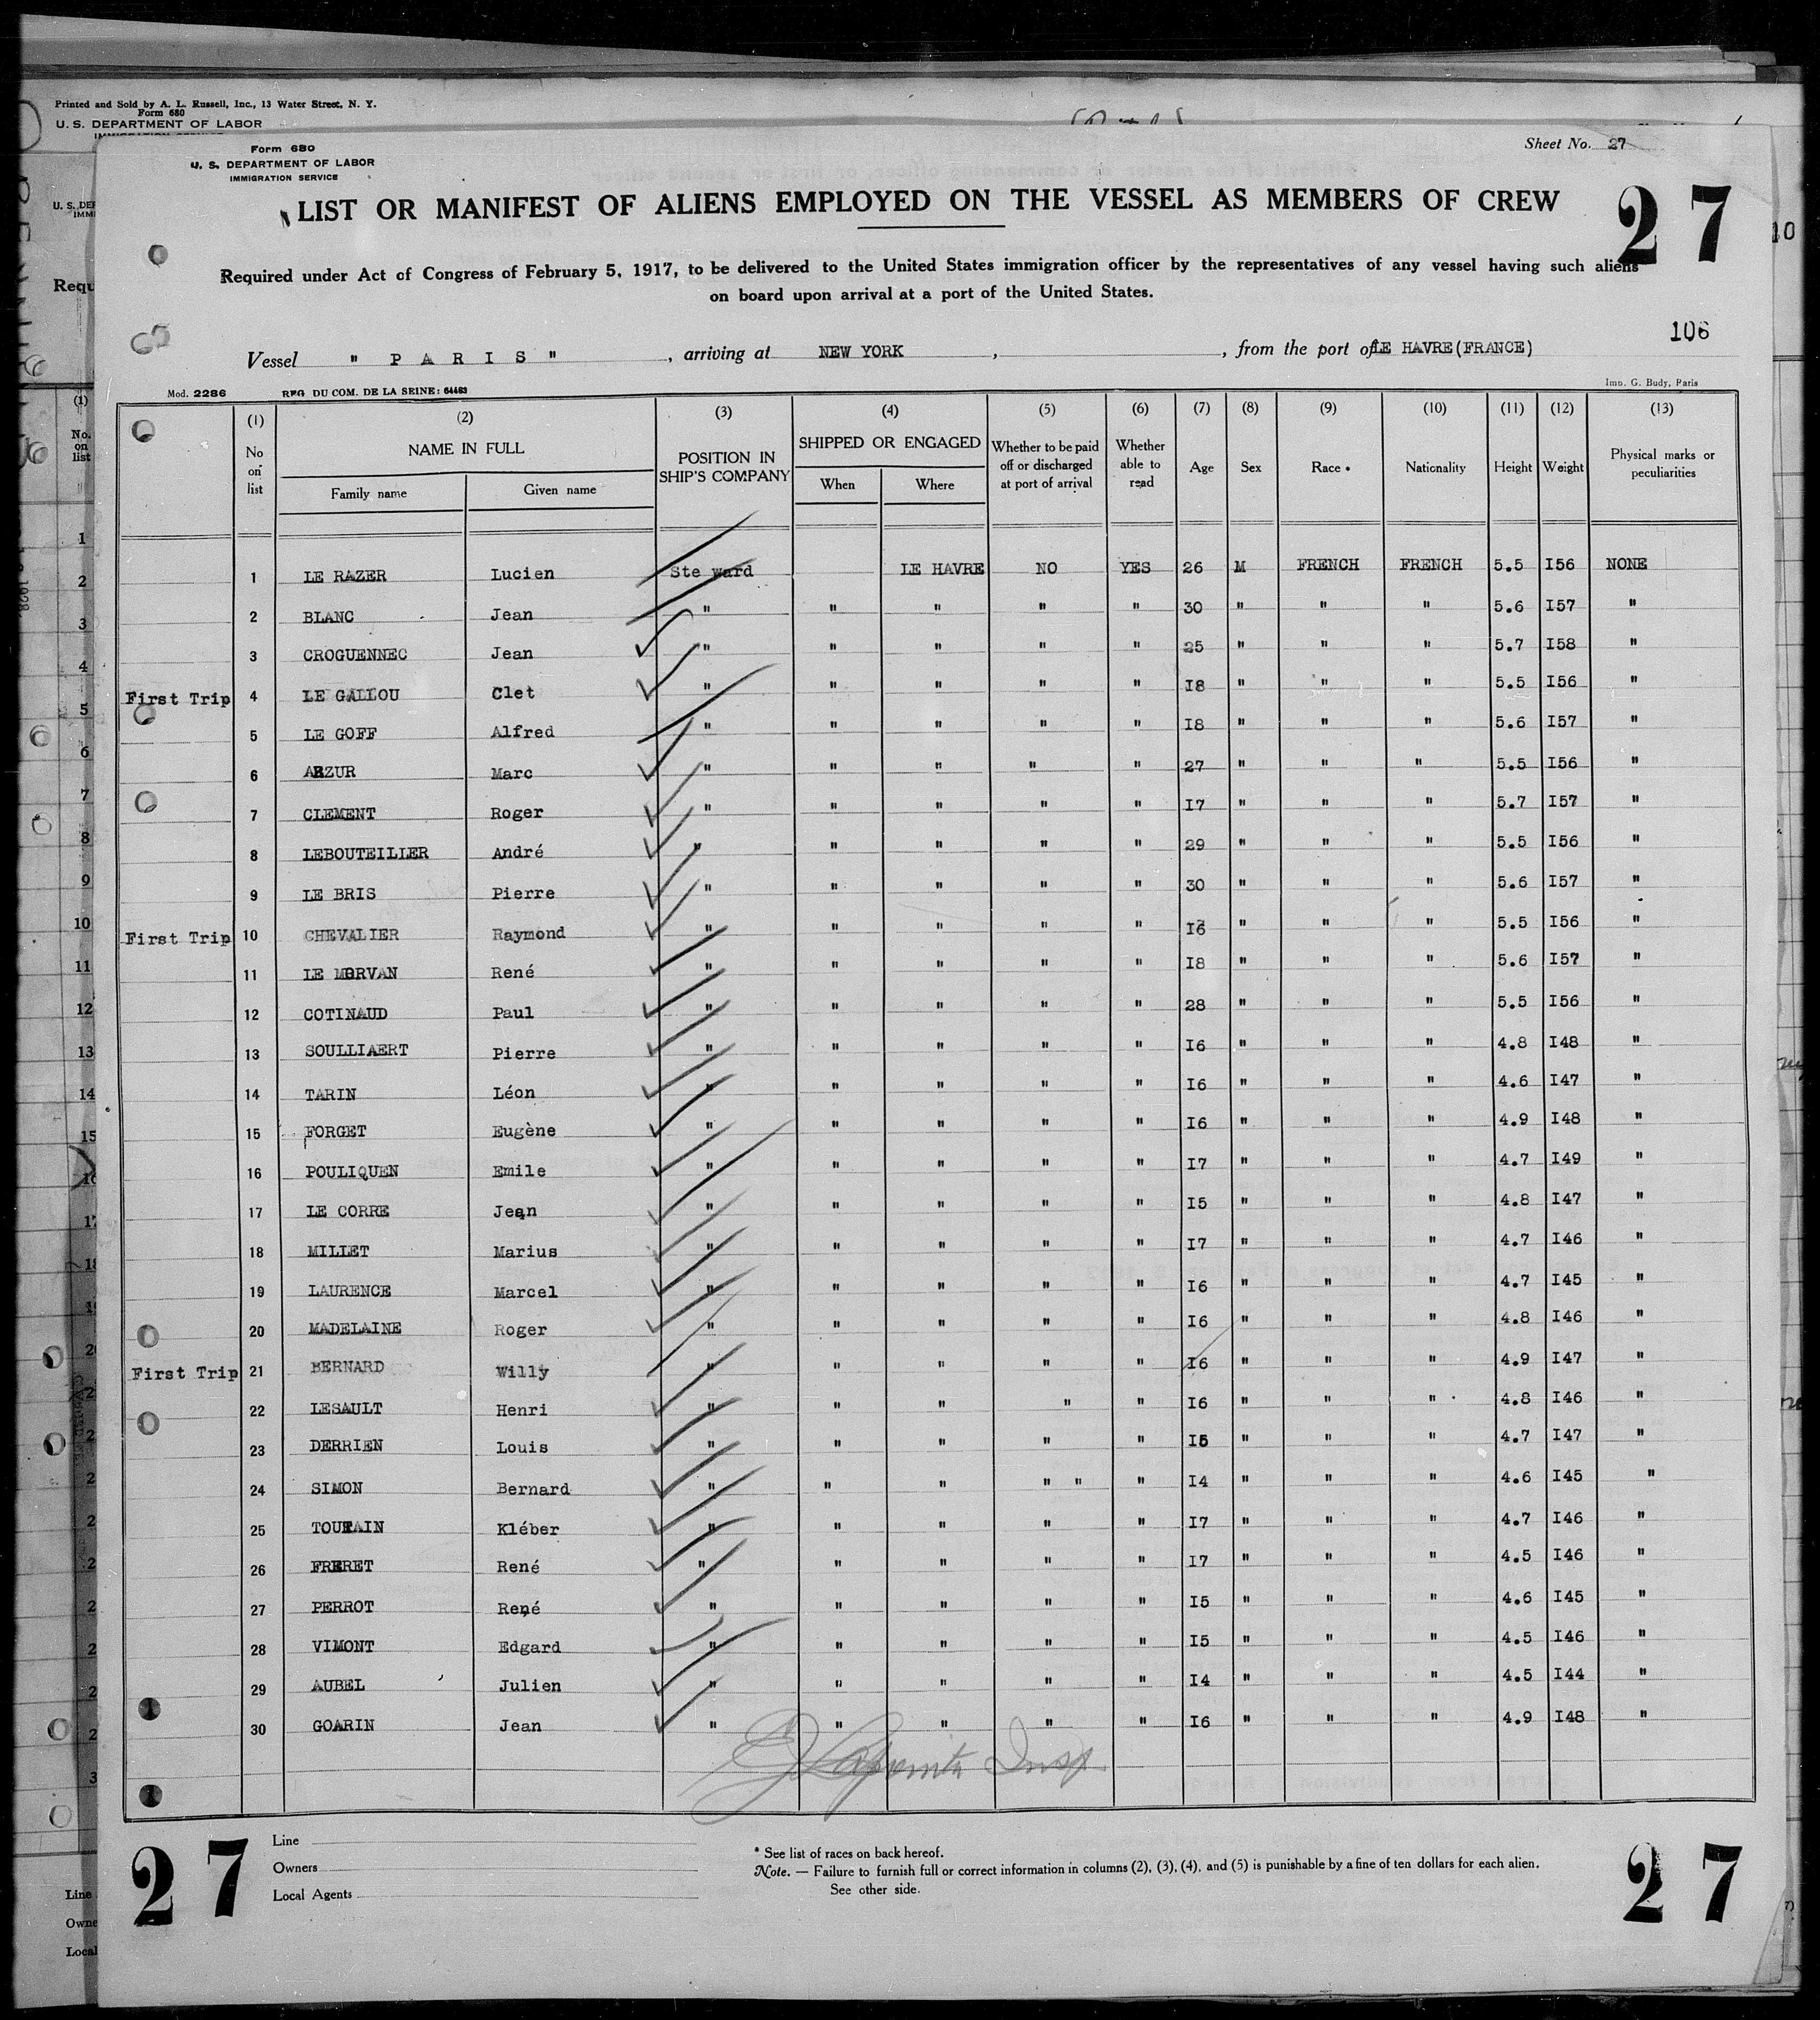 Printed and Sold by A. L. Russell, Inc., 13 Water Street, N. Y.
Form 680
U. S. DEPARTMENT OF LABOR
Form 680
U. S. DEPARTMENT OF LABOR
IMMIGRATION SERVICE
Sheet No. 27
LIST OR MANIFEST OF ALIENS EMPLOYED ON THE VESSEL AS MEMBERS OF CREW
27
Required under Act of Congress of February 5, 1917, to be delivered to the United States immigration officer by the representatives of any vessel having such aliens
on board upon arrival at a port of the United States.
106
Vessel " P A R I S " , arriving at NEW YORK , , from the port of LE HAVRE (FRANCE)
Mod. 2286 REG DU COM. DE LA SEINE: 64463 Imp. G. Budy, Paris
(1) (2) (3) (4) (5) (6) (7) (8) (9) (10) (11) (12) (13)
No on list NAME IN FULL Family name Given name POSITION IN SHIP'S COMPANY SHIPPED OR ENGAGED When Where Whether to be paid off or discharged at port of arrival Whether able to read Age Sex Race * Nationality Height Weight Physical marks or peculiarities
1 LE RAZER Lucien Ste ward LE HAVRE NO YES 26 M FRENCH FRENCH 5.5 I56 NONE
2 BLANC Jean " " " " " 30 " " " 5.6 I57 "
3 CROGUENNEC Jean " " " " " 25 " " " 5.7 I58 "
First Trip 4 LE GALLOU Clet " " " " " I8 " " " 5.5 I56 "
5 LE GOFF Alfred " " " " " I8 " " " 5.6 I57 "
6 ARZUR Marc " " " " " 27 " " " 5.5 I56 "
7 CLEMENT Roger " " " " " I7 " " " 5.7 I57 "
8 LEBOUTEILLER André " " " " " 29 " " " 5.5 I56 "
9 LE BRIS Pierre " " " " " 30 " " " 5.6 I57 "
First Trip 10 CHEVALIER Raymond " " " " " I6 " " " 5.5 I56 "
11 LE MORVAN René " " " " " I8 " " " 5.6 I57 "
12 COTINAUD Paul " " " " " 28 " " " 5.5 I56 "
13 SOULLIAERT Pierre " " " " " I6 " " " 4.8 I48 "
14 TARIN Léon " " " " " I6 " " " 4.6 I47 "
15 FORGET Eugène " " " " " I6 " " " 4.9 I48 "
16 POULIQUEN Emile " " " " " I7 " " " 4.7 I49 "
17 LE CORRE Jean " " " " " I5 " " " 4.8 I47 "
18 MILLET Marius " " " " " I7 " " " 4.7 I46 "
19 LAURENCE Marcel " " " " " I6 " " " 4.7 I45 "
20 MADELAINE Roger " " " " " I6 " " " 4.8 I46 "
First Trip 21 BERNARD Willy " " " " " I6 " " " 4.9 I47 "
22 LESAULT Henri " " " " " I6 " " " 4.8 I46 "
23 DERRIEN Louis " " " " " I5 " " " 4.7 I47 "
24 SIMON Bernard " " " " " " I4 " " " 4.6 I45 "
25 TOUTAIN Kléber " " " " " I7 " " " 4.7 I46 "
26 FRERET René " " " " " I7 " " " 4.5 I46 "
27 PERROT René " " " " " I5 " " " 4.6 I45 "
28 VIMONT Edgard " " " " " I5 " " " 4.5 I46 "
29 AUBEL Julien " " " " " I4 " " " 4.5 I44 "
30 GOARIN Jean " " " " " I6 " " " 4.9 I48 "
Insp.
27
Line
Owners
Local Agents
* See list of races on back hereof.
Note. — Failure to furnish full or correct information in columns (2), (3), (4), and (5) is punishable by a fine of ten dollars for each alien.
See other side.
27